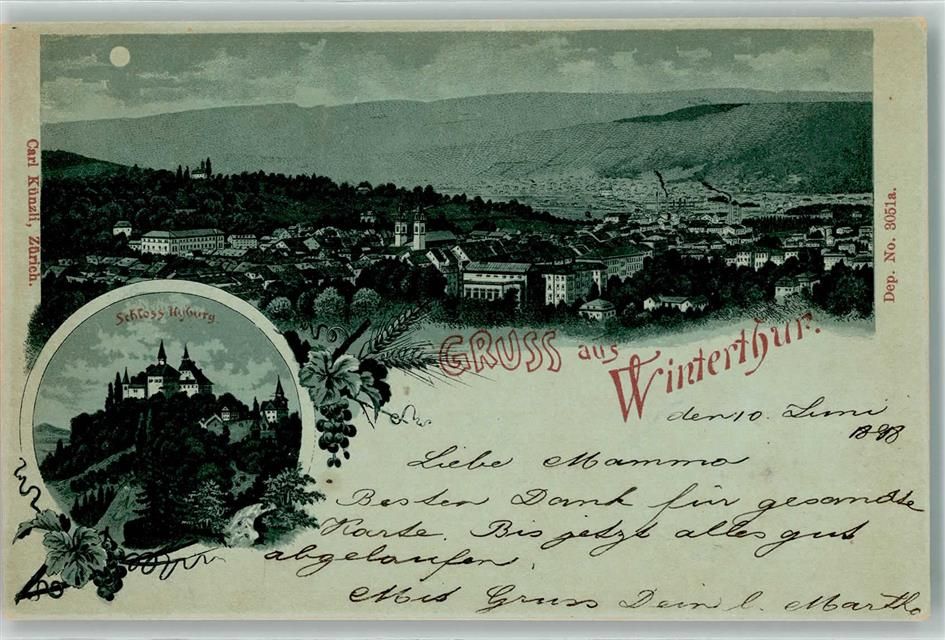 Carl Künzli, Zürich.
Dep. No. 3051a.
Schloss Kyburg.
GRUSS aus
Winterthur.
den 10. Juni
1898
Liebe Mamma
Besten Dank für gesandte
Karte. Bis jetzt alles gut
abgelaufen.
Mit Gruss Dein l. Martha